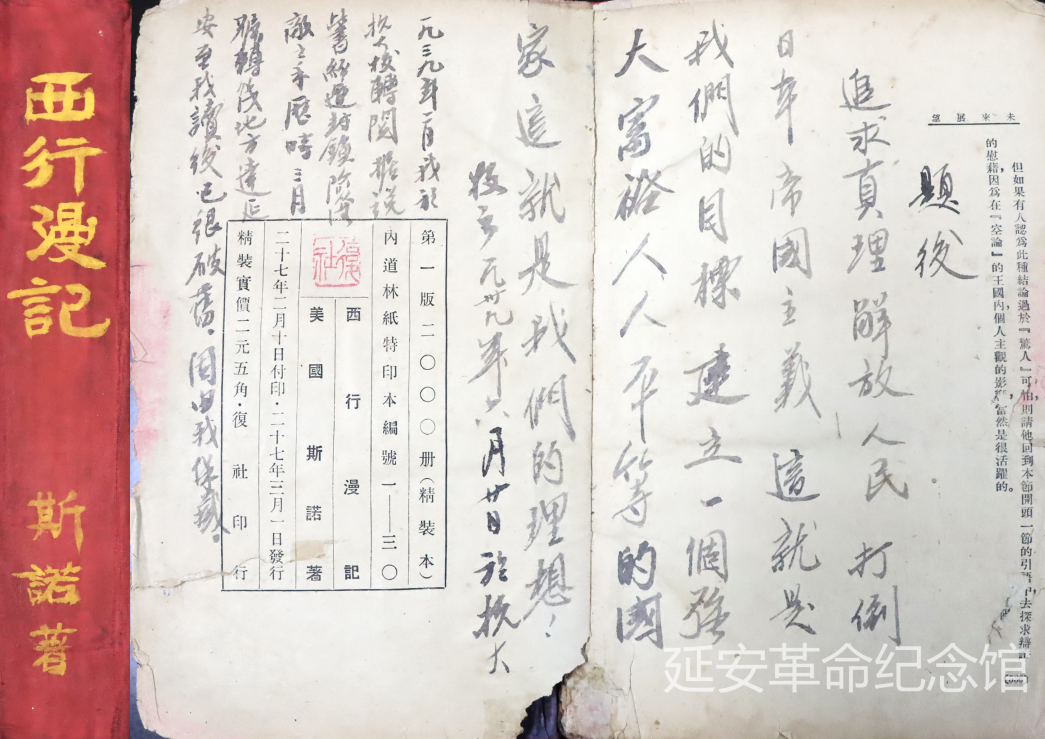 西行漫記
斯諾著
未來展望
但如果有人認爲此種結論過於『驚人』可怕，則請他回到本節開頭一節的引語中，去探求辯
的慰藉，因爲在『空論』的王國內個人主觀的影響，當然是很活躍的。
題後
追求真理解放人民 打倒
日本帝國主義 這就是
我們的目標 建立一個强
大富裕人人平等的國
家這就是我們的理想！
九卅九年六月廿日於抗大
一九三九年二月我於
抗大校轉閱 据說
遭封鎖險落
敵之手歷時三月
輾轉 地方達延
安至我讀後已很破舊，因由我保藏。
第一版二〇〇〇册（精裝本）
內道林紙特印本編號一——三〇
復社
西行漫記
美國斯諾著
二十七年二月十日付印·二十七年三月一日發行
精裝實價二元五角·復社印行
延安革命纪念馆